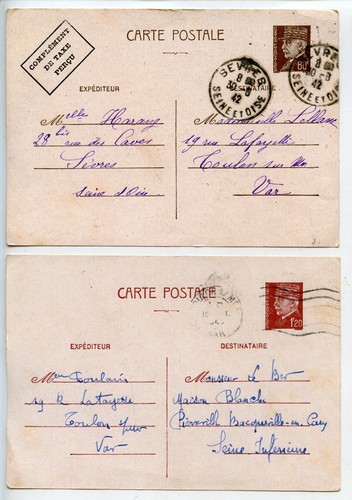 COMPLÉMENT
DE TAXE
PERÇU
CARTE POSTALE
80
SEVRES
8
30-8
42
SEINE ET OISE
SEVRES
8
30-8
42
SEINE ET OISE
EXPÉDITEUR
DESTINATAIRE
Melle Harang
28 bis rue des Caves
Sèvres
Seine et Oise
Mademoiselle
19 rue Lafayette
Toulon sur Mer
Var
CARTE POSTALE
1f20
VAR
EXPÉDITEUR
DESTINATAIRE
19 R Lafayette
Toulon sur mer
Var
Monsieur Le Ber
Maison Blanche
Bacqueville-en-Caux
Seine Inférieure